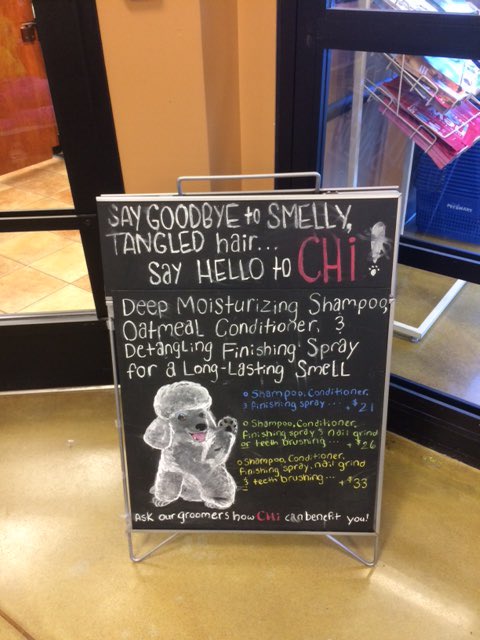 SAY GOODBYE to SMELLY,
TANGLED hair...
SAY HELLO to CHi!
Deep Moisturizing Shampoo,
Oatmeal Conditioner, &
Detangling Finishing Spray
for a Long-Lasting Smell
Shampoo, Conditioner,
& finishing spray... +$21
Shampoo, Conditioner,
finishing spray & nail grind
or teeth brushing... +$26
Shampoo, Conditioner,
finishing spray, nail grind
& teeth brushing... +$33
Ask our groomers how CHi can benefit you!
PETSMART